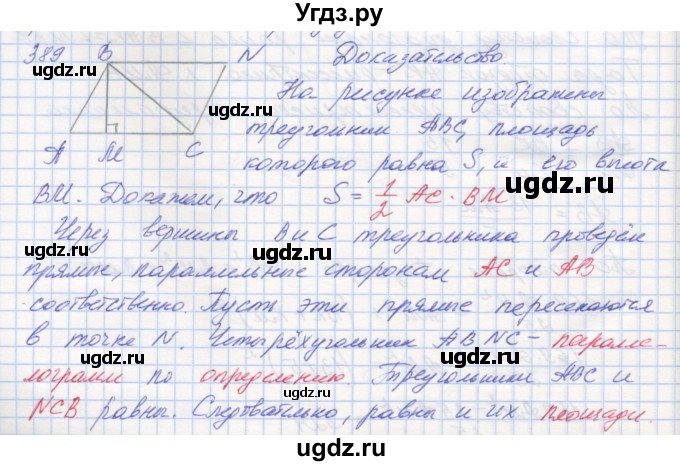 Угдз.ру
389 B N Доказательство.
На рисунке изображены
треугольник ABC, площадь
A M C которого равна S, и его высота
BM. Докажем, что S = 1/2 AC · BM
Через вершины B и C треугольника проведём
прямые, параллельные сторонам AC и AB
соответственно. Пусть эти прямые пересекаются
в точке N. Четырёхугольник ABNC – паралле-
лограмм по определению. Треугольники ABC и
NCB равны. Следовательно, равны и их площади.
Угдз.ру